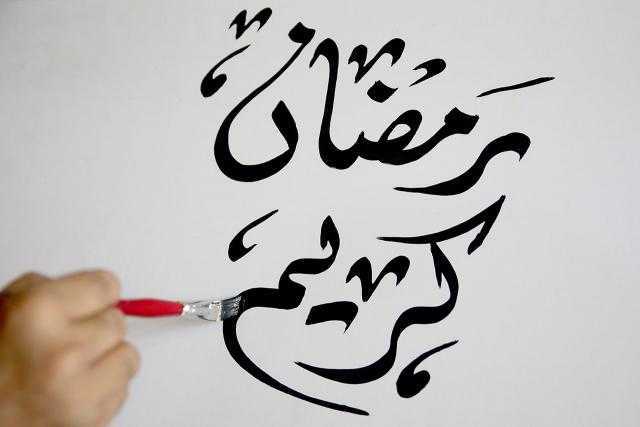 رمضان
كريم